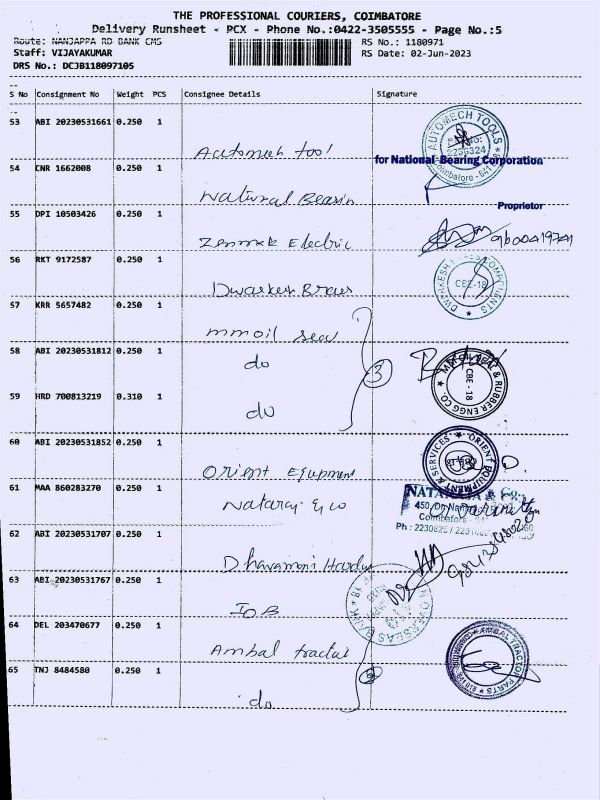 THE PROFESSIONAL COURIERS, COIMBATORE
Delivery Runsheet - PCX - Phone No.:0422-3505555 - Page No.:5
Route: NANJAPPA RD BANK CMS
RS No.: 1180971
Staff: VIJAYAKUMAR
RS Date: 02-Jun-2023
DRS No.: DCJB118097105
S No Consignment No Weight PCS Consignee Details Signature
53 ABI 20230531661 0.250 1
Automech tool
AUTOMECH TOOLS
Coimbatore - 641
for National Bearing Corporation
54 CNR 1662008 0.250 1
National Bearin
Proprietor
55 DPI 10503426 0.250 1
Electric
56 RKT 9172587 0.250 1
Dwarkesh
DWARKESH
CBE-18
57 KRR 5657482 0.250 1
mm oil seal
58 ABI 20230531812 0.250 1
do
3
OIL SEAL & RUBBER ENGG CO.
CBE - 18
59 HRD 700813219 0.310 1
do
60 ABI 20230531852 0.250 1
Orient Equipment
ORIENT EQUIPMENT & SERVICES
61 MAA 860283270 0.250 1
Nataraj & co
NATARAJ & Co.
450, Dr. Na
Coimbatore
62 ABI 20230531707 0.250 1
Dharamani Hardw
63 ABI 20230531767 0.250 1
IOB
OVERSEAS BANK
64 DEL 203470677 0.250 1
Ambal tractor
AMBAL TRACTOR PARTS
65 TNJ 8484580 0.250 1
do